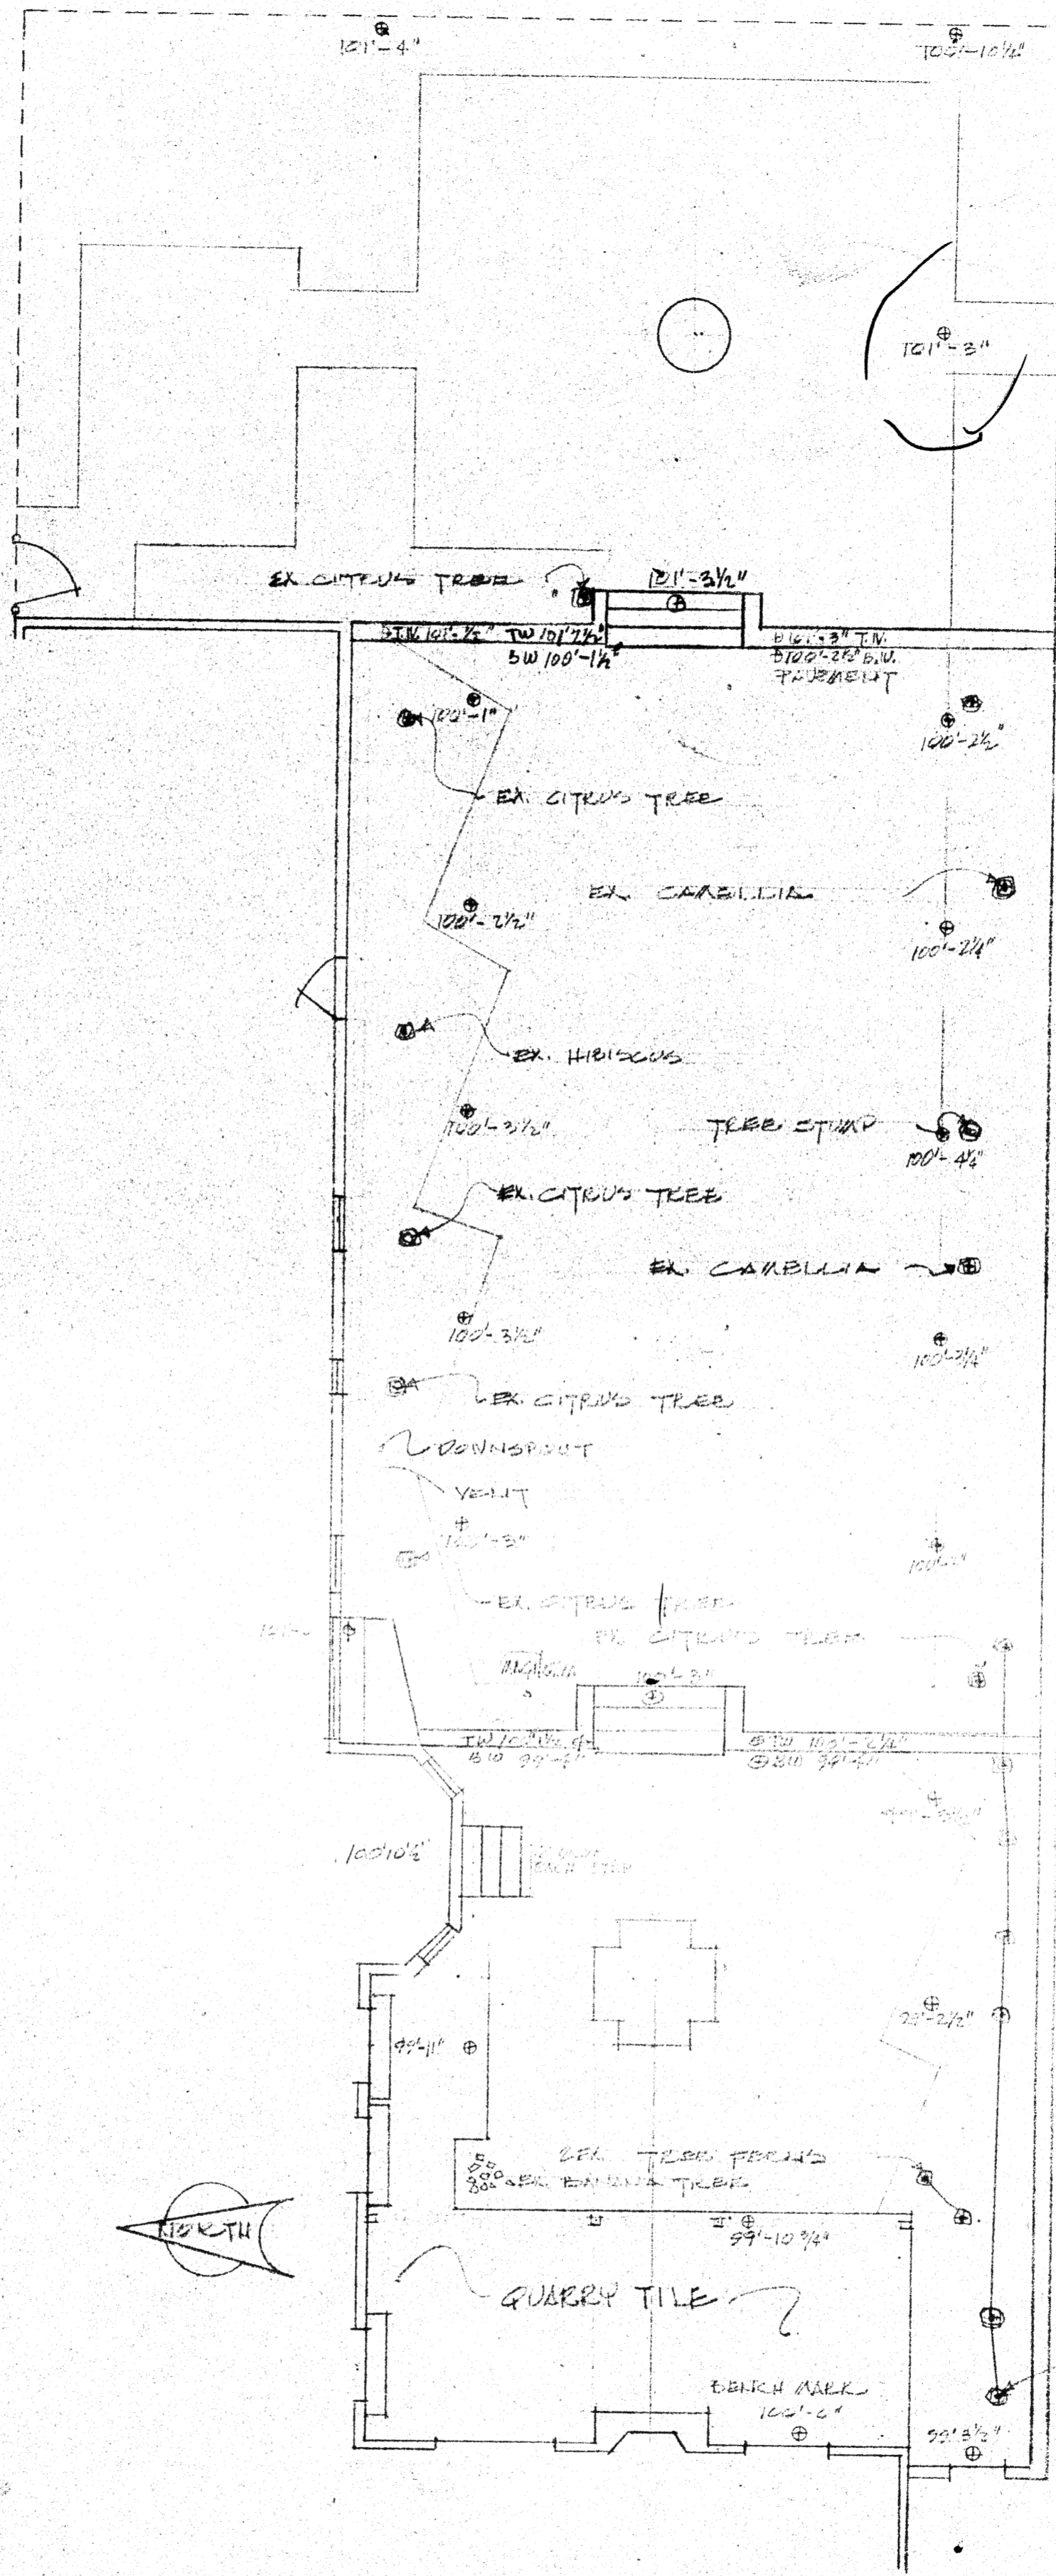 101'-4"
100'-10¼"
101'-3"
EX. CITRUS TREE
101'-3½"
TW 101'7½"
BW 100'-1½"
101'-3" T.W.
100'-2½" B.W.
PAVEMENT
100'-1"
100'-2½"
EX. CITRUS TREE
EX. CAMELLIA
100'-2½"
100'-2¼"
EX. HIBISCUS
100'-3½"
TREE STUMP
100'-4¼"
EX. CITRUS TREE
EX. CAMELLIA
100'-3½"
100'-3¼"
EX. CITRUS TREE
DOWNSPOUT
VENT
100'-3"
EX. CITRUS TREE
EX. CITRUS TREE
MAGNOLIA
100'-3"
TW
BW 99'-4"
TW 100'-2¼"
BW 99'-4"
100'10½"
EACH STEP
99'-2½"
99'-11"
2 EX. TREE FERNS
EX. BANANA TREE
NORTH
99'-10¾"
QUARRY TILE
BENCH MARK
100'-0"
99'3½"